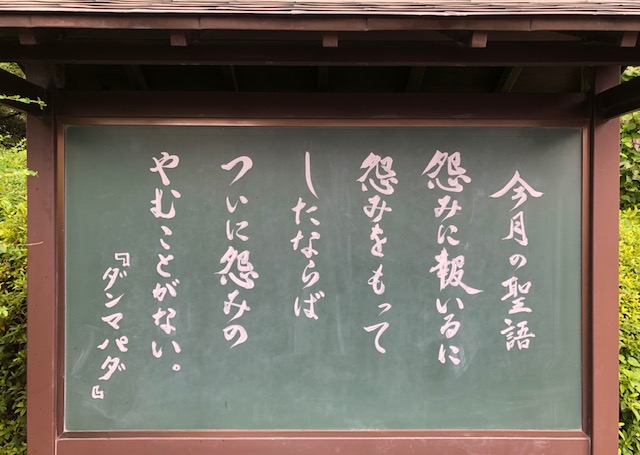 今月の聖語
怨みに報いるに
怨みをもって
したならば
ついに怨みの
やむことがない。
『ダンマパダ』